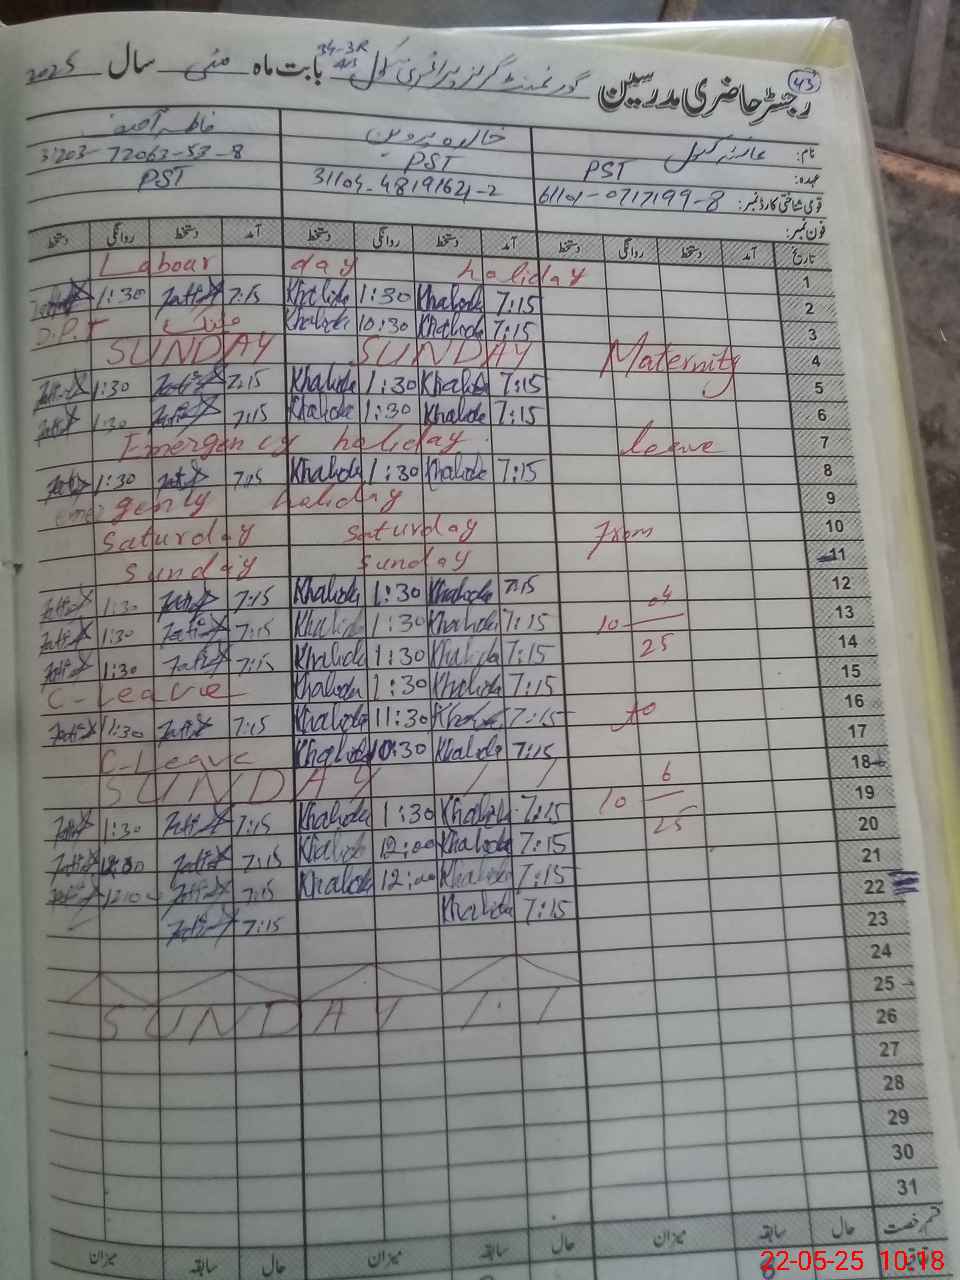 43
رجسٹر حاضری مدرسین گورنمنٹ گرلز پرائمری سکول 34-3R بابت ماہ مئی سال 2025
نام: خالدہ پروین فاطمہ
عہدہ: PST PST 31203-72063-53-8
قومی شناختی کارڈ نمبر: 61101-0717199-8 31104-4819162-2 PST
فون نمبر:
تاریخ آمد دستخط روانگی دستخط آمد دستخط روانگی دستخط آمد دستخط روانگی دستخط
Labour day holiday 1
1:30 7:15 Khalida 1:30 Khalida 7:15 2
Khalida 10:30 Khalida 7:15 3
SUNDAY SUNDAY Maternity 4
1:30 7:15 Khalida 1:30 Khalida 7:15 5
1:30 7:15 Khalida 1:30 Khalida 7:15 6
Emergency holiday leave 7
1:30 7:15 Khalida 1:30 Khalida 7:15 8
emergenly holiday 9
Saturday Saturday From 10
Sunday Sunday 11
1:30 7:15 Khalida 1:30 Khalida 7:15 12
1:30 7:15 Khalida 1:30 Khalida 7:15 10 04 25 13
1:30 7:15 Khalida 1:30 Khalida 7:15 14
C-Leave Khalida 1:30 Khalida 7:15 15
1:30 7:15 Khalida 11:30 Khalida 7:15 to 16
C-Leave Khalida 10:30 Khalida 7:15 17
SUNDAY 18
1:30 7:15 Khalida 1:30 Khalida 7:15 10 6 25 19
12:00 7:15 Khalida 12:00 Khalida 7:15 20
12:00 7:15 Khalida 12:00 Khalida 7:15 21
7:15 Khalida 7:15 22
23
24
SUNDAY 25
26
27
28
29
30
31
قسم رخصت
حال سابقہ میزان حال سابقہ میزان حال سابقہ میزان
22-05-25 10:18